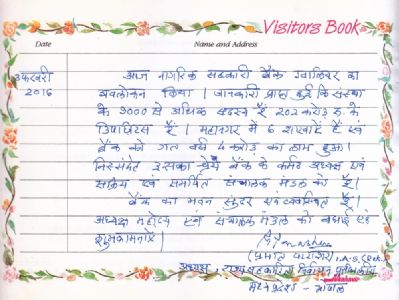 Visitors Book
Date Name and Address
3 फरवरी आज नागरिक सहकारी बैंक ग्वालियर का
2016 अवलोकन किया। जानकारी प्राप्त हुई कि संस्था
के 9000 से अधिक सदस्य हैं 202 करोड़ रु. के
डिपाजिटस हैं। महानगर में 6 शाखाएँ हैं एवं
बैंक को गत वर्ष 4 करोड़ का लाभ हुआ।
निःसंदेह इसका श्रेय बैंक के कर्मठ अध्यक्ष एवं
सक्रिय एवं समर्पित संचालक मंडल को है।
बैंक का भवन सुन्दर एवं व्यवस्थित है।
अध्यक्ष महोदय एवं संचालक मंडल को बधाई एवं
शुभकामनाऐं।
(प्रभात पाराशर) I.A.S. (Retd.)
अध्यक्ष, राज्य सहकारिता निर्वाचन प्राधिकारी
मध्यप्रदेश - भोपाल